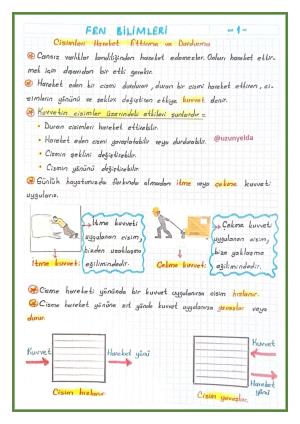 FEN BİLİMLERİ -1-
Cisimleri Hareket Ettirme ve Durdurma
Cansız varlıklar kendiliğinden hareket edemezler. Onları hareket ettir-
mek için dışarıdan bir etki gerekir.
Hareket eden bir cismi durduran, duran bir cismi hareket ettiren, ci-
simlerin yönünü ve şeklini değiştiren etkiye kuvvet denir.
Kuvvetin cisimler üzerindeki etkileri şunlardır:
• Duran cisimleri hareket ettirebilir.
• Hareket eden cismi yavaşlatabilir veya durdurabilir.
@uzunyelda
• Cismin şeklini değiştirebilir.
• Cismin yönünü değiştirebilir.
Günlük hayatımızda farkında olmadan itme veya çekme kuvveti
uygularız.
İtme kuvveti
uygulanan cisim,
bizden uzaklaşma
eğilimindedir.
İtme kuvvet:
Çekme kuvveti
uygulanan cisim,
bize yaklaşma
eğilimindedir.
Çekme kuvvet:
Cisme hareketi yönünde bir kuvvet uygulanırsa cisim hızlanır.
Cisme hareket yönüne zıt yönde kuvvet uygulanırsa yavaşlar veya
durur.
Kuvvet
Hareket yönü
Cisim hızlanır.
Kuvvet
Hareket
Yönü
Cisim yavaşlar.